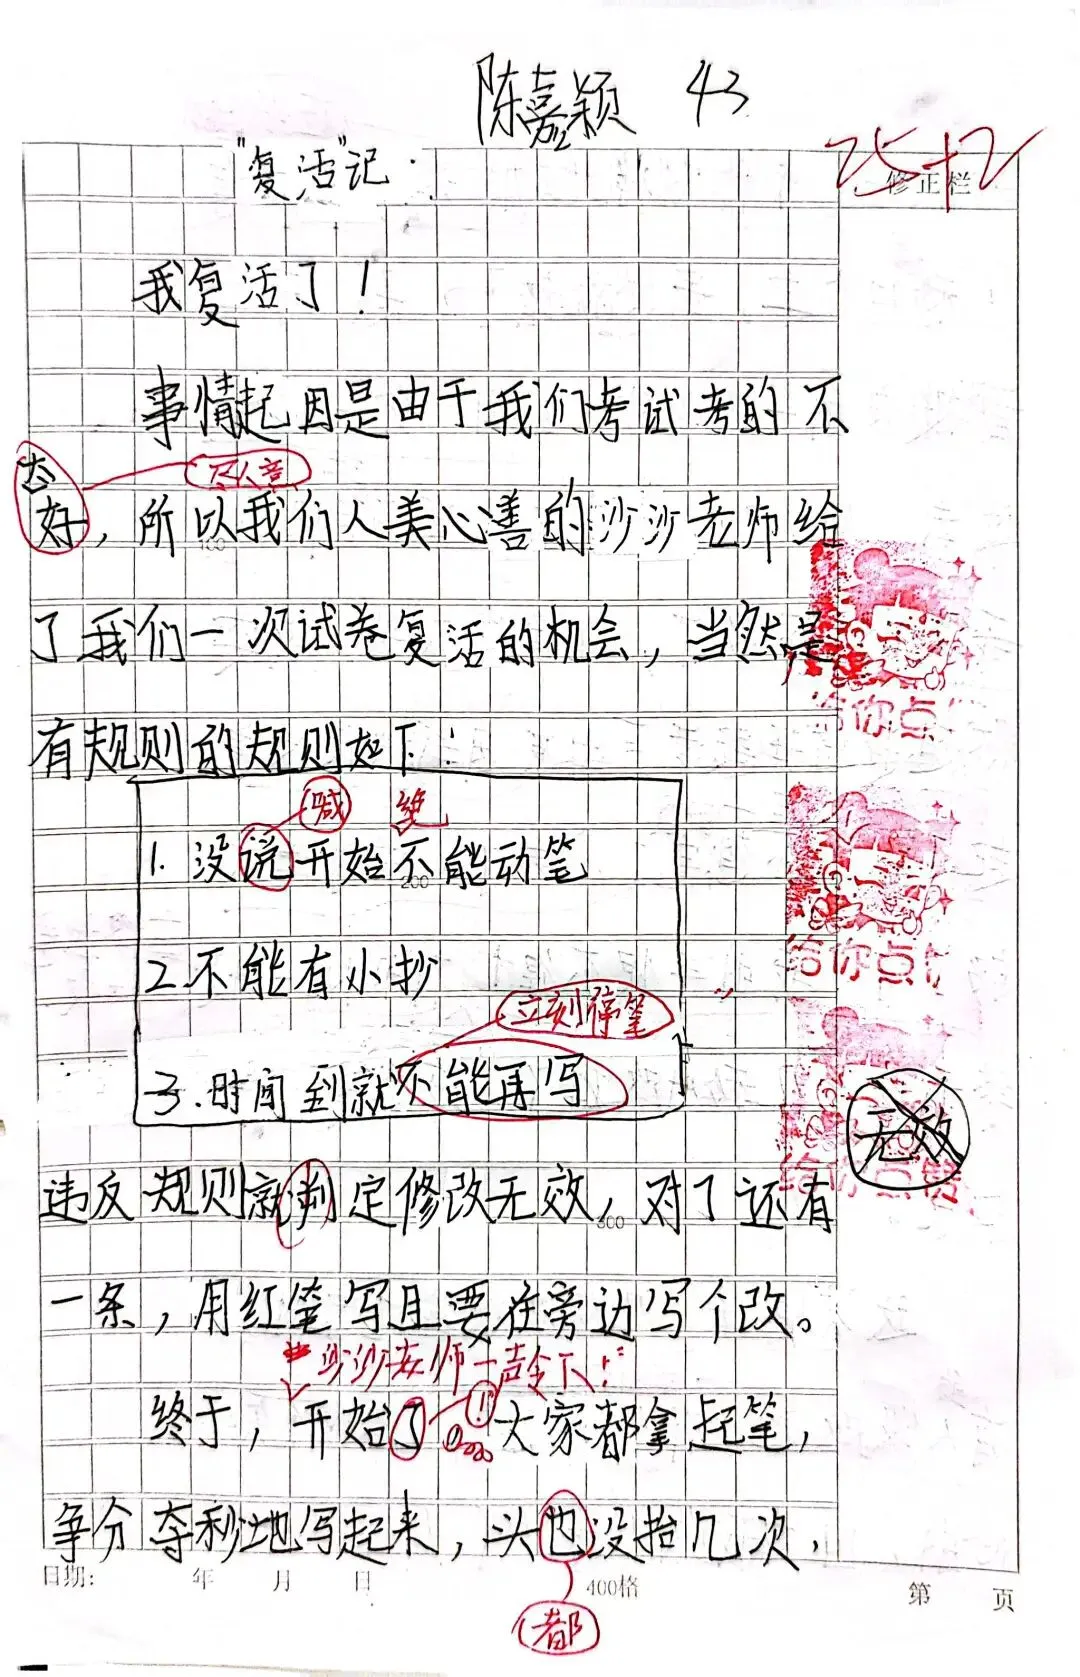 陈嘉颖 43
25+2
修正栏
"复活"记
我复活了！
事情起因是由于我们考试考的不
太
尽人意
好，所以我们人美心善的沙沙老师给
了我们一次试卷复活的机会，当然是
给你点
有规则的规则如下：
喊 绝
1.没说开始不能动笔
200
给你点
2.不能有小抄
立刻停笔
3.时间到就不能再写
无效
给你点赞
违反规则就判定修改无效，对了还有
300
一条，用红笔写且要在旁边写个改。
沙沙老师一声令下！
终于，开始了！大家都拿起笔，
争分夺秒地写起来，头也没抬几次，
日期： 年 月 日 400格 第 页
都